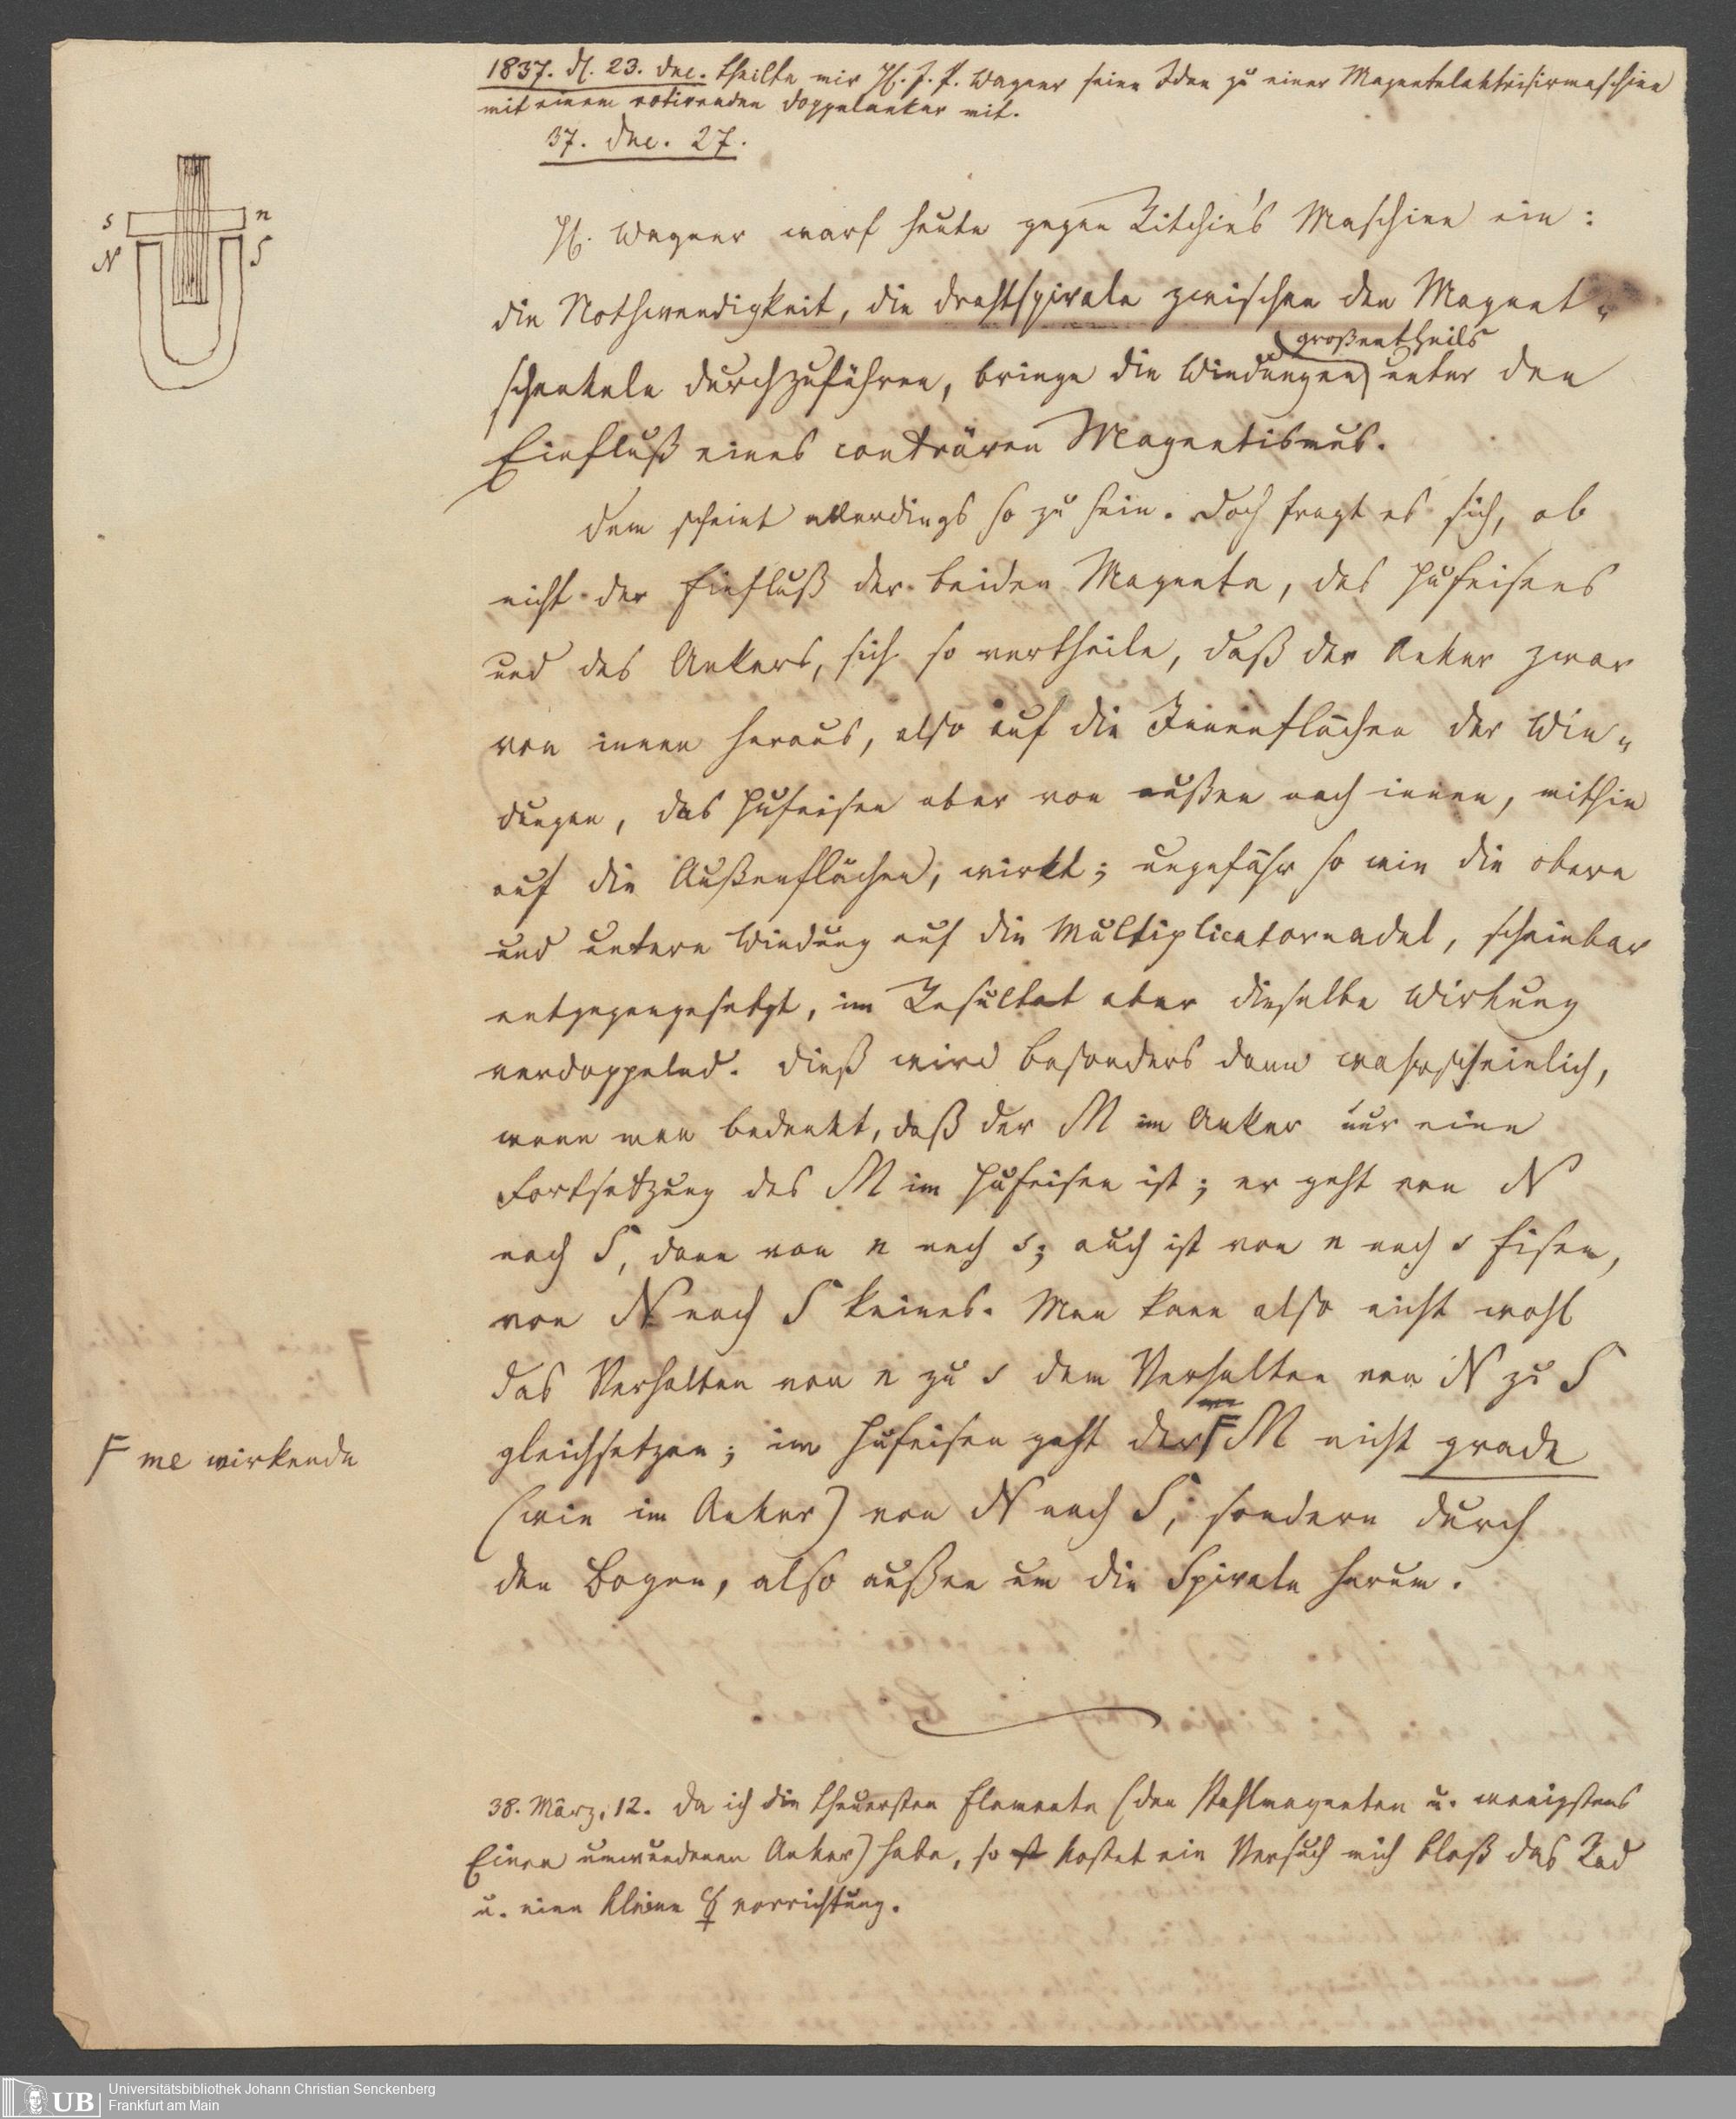 1837. d. 23. Dec. theilte mir H. J. P. Wagner seine Idee zu einer Magnetelektrisirmaschine
mit einem rotirenden Doppelanker mit.
37. Dec. 27.
s n
N S
H. Wagner warf heute gegen Ritchie's Maschine ein:
die Nothwendigkeit, die Drahtspirale zwischen den Magnet-
großentheils
schenkeln durchzuführen, bringe die Windungen unter den
Einfluß eines conträren Magnetismus.
Dem scheint allerdings so zu sein. Doch fragt es sich, ob
nicht der Einfluß der beiden Magnete, des Hufeisens
und des Ankers, sich so vertheile, daß der Anker zwar
von innen heraus, also auf die Innenflächen der Win-
dungen, das Hufeisen aber von außen nach innen, mithin
auf die Außenflächen, wirkt; ungefähr so wie die obere
und untere Windung auf die Multiplicatornadel, scheinbar
entgegengesetzt, im Resultat aber dieselbe Wirkung
verdoppelnd. Dieß wird besonders dann wahrscheinlich,
wenn man bedenkt, daß der M im Anker nur eine
Fortsetzung des M im Hufeisen ist; er geht von N
nach S, dann von n nach s; auch ist von n nach s Eisen,
von N nach S keines. Man kann also nicht wohl
das Verhalten von n zu s dem Verhalten von N zu S
gleichsetzen; im Hufeisen geht der F M nicht grade
F me wirkende
(wie im Anker) von N nach S, sondern durch
den Bogen, also außen um die Spirale herum.
38. März, 12. Da ich die theuersten Elemente (den Stahlmagneten u. wenigstens
Einen umwundenen Anker) habe, so kostet ein Versuch mich bloß das Rad
u. eine kleine ☿ vorrichtung.
UB
Universitätsbibliothek Johann Christian Senckenberg
Frankfurt am Main